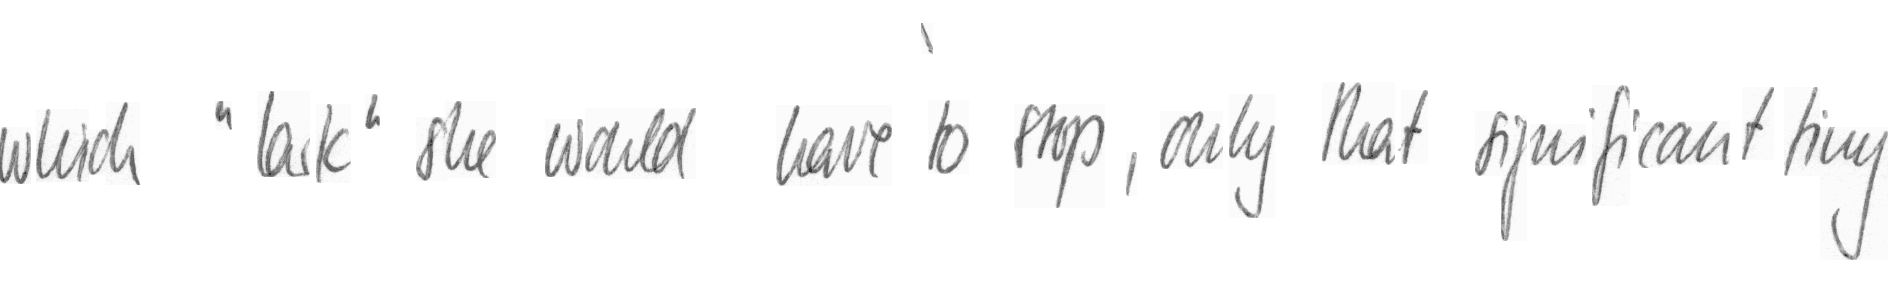 which "lark" she would have to stop, only that significant tiny